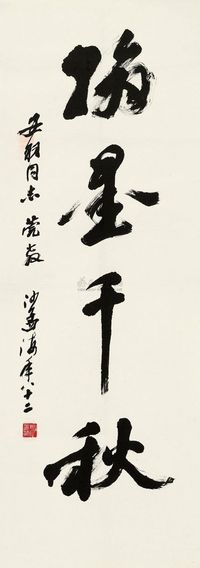 翰墨千秋
羽同志莞教
沙孟海年八十二